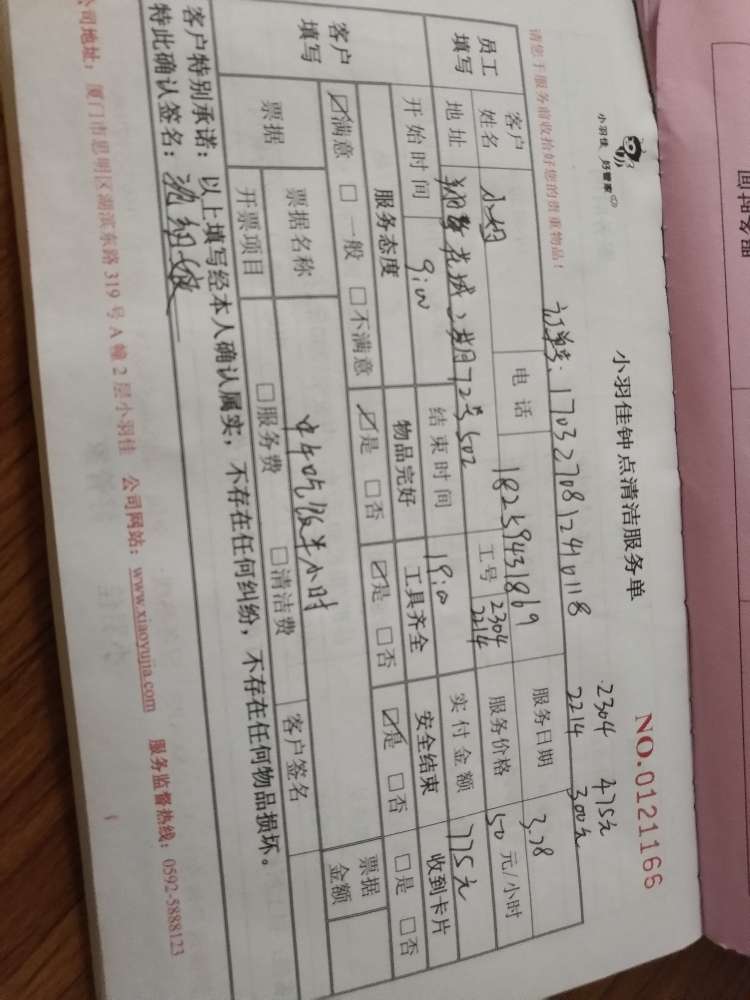 小羽佳 好管家
小羽佳钟点清洁服务单
NO.0121166
2304 475元
2214 300元
请您于服务前收拾好您的贵重物品!
订单号: 170327081240118
员工填写
客户姓名 小姐 电话 18259431869 服务日期 3.28
地址 翔鹭花城二期 725 502 工号 2304 2214 服务价格 50 元/小时
开始时间 9:00 结束时间 19:00 实付金额 775元
客户填写
服务态度 物品完好 工具齐全 安全结束 收到卡片
☑满意 □一般 □不满意 ☑是 □否 ☑是 □否 ☑是 □否 □是 □否
票据 票据名称 中午吃饭半小时 客户签名 票据金额
开票项目 □服务费 □清洁费
客户特别承诺:以上填写经本人确认属实,不存在任何纠纷,不存在任何物品损坏。
特此确认签名:
公司地址:厦门市思明区湖滨东路 319 号 A 幢 2 层小羽佳 公司网站:www.xiaoyujia.com 服务监督热线:0592-5888123